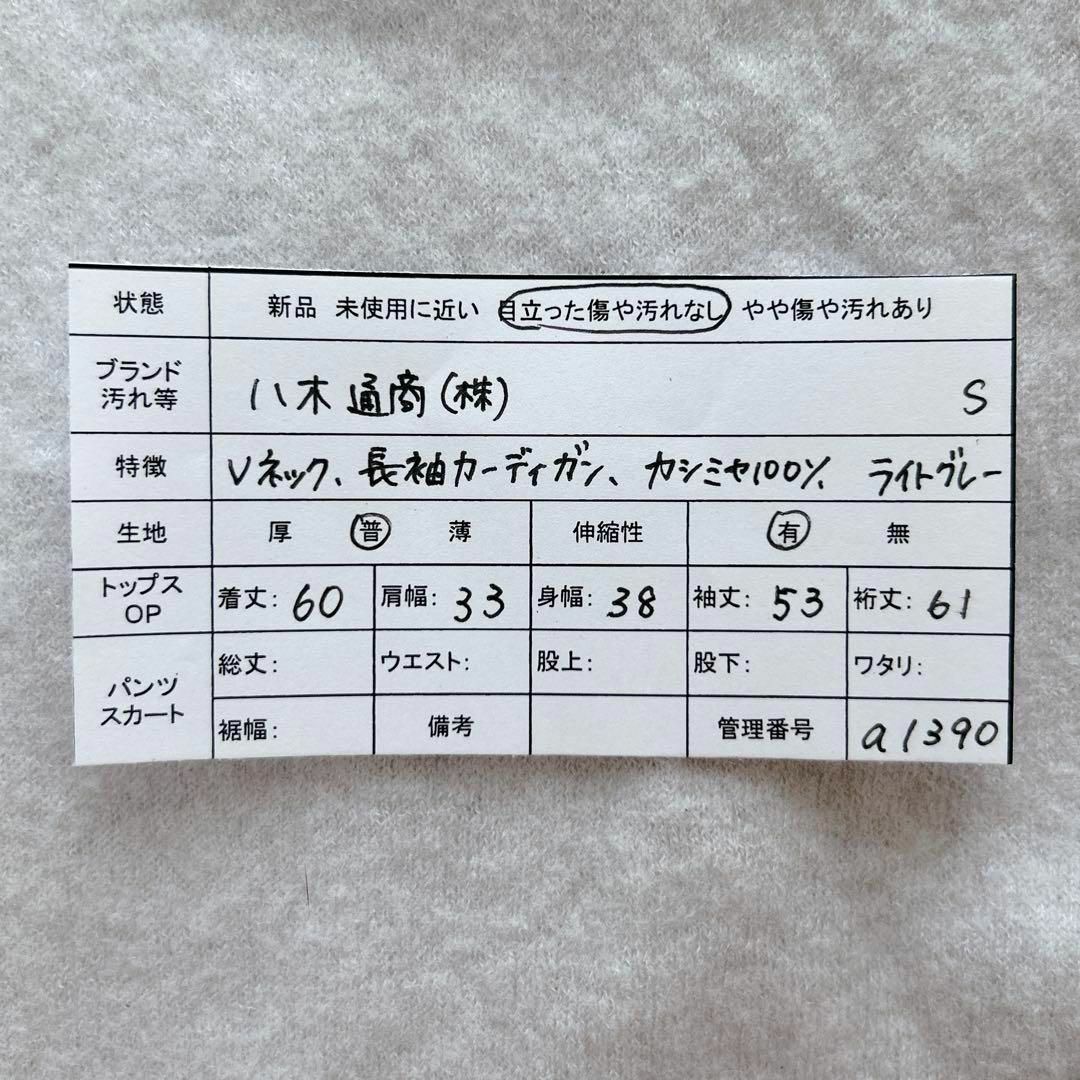 状態 新品 未使用に近い 目立った傷や汚れなし やや傷や汚れあり
ブランド
汚れ等 八木通商(株) S
特徴 Vネック、長袖カーディガン、カシミヤ100% ライトグレー
生地 厚 普 薄 伸縮性 有 無
トップス
OP 着丈: 60 肩幅: 33 身幅: 38 袖丈: 53 裄丈: 61
パンツ
スカート 総丈: ウエスト: 股上: 股下: ワタリ:
裾幅: 備考 管理番号 a1390